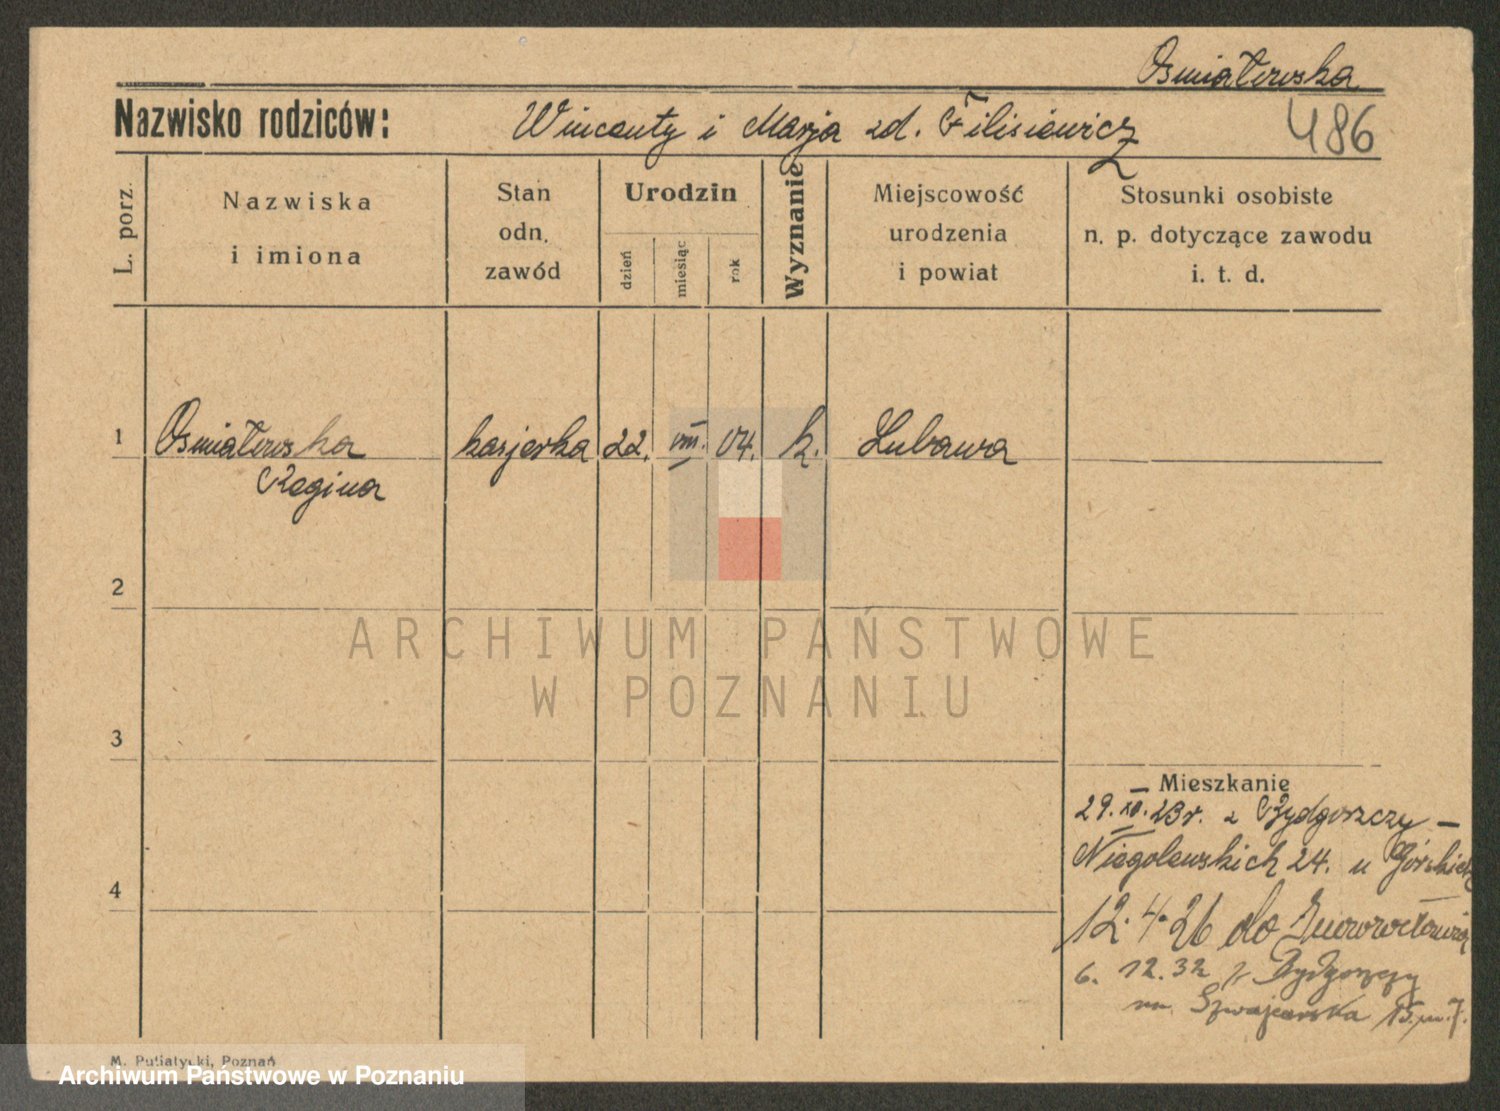 Osmiałowska
Nazwisko rodziców: Wincenty i Marja zd. Filisiewicz 486
L. porz.
Nazwiska
i imiona
Stan
odn.
zawód
Urodzin
dzień
miesiąc
rok
Wyznanie
Miejscowość
urodzenia
i powiat
Stosunki osobiste
n. p. dotyczące zawodu
i. t. d.
1 Osmiałowska kasjerka 22. VIII. 04. k. Lubawa
Regina
2
ARCHIWUM PAŃSTWOWE
W POZNANIU
3
Mieszkanie
29.XII.23r. z Bydgoszczy –
Niegolewskich 24. u Górskich
4
12.4.26 do Inowrocławia
6. 12.32 z Bydgoszczy
Szwajcarska 15 m. 7.
M. Putiatycki, Poznań
Archiwum Państwowe w Poznaniu